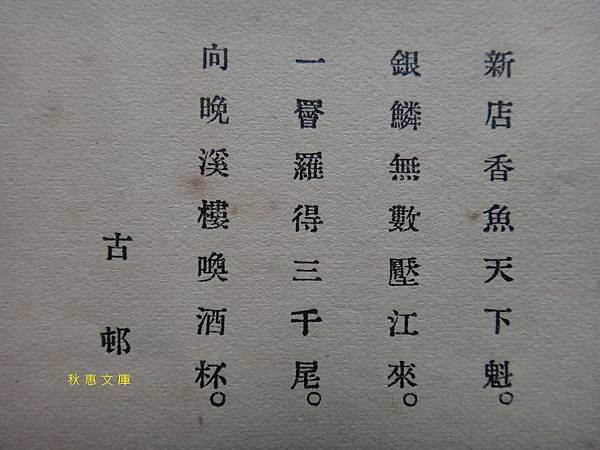 新店香魚天下魁。
銀鱗無數壓江來。
一罾羅得三千尾。
向晚溪樓喚酒杯。
古邨
秋惠文庫